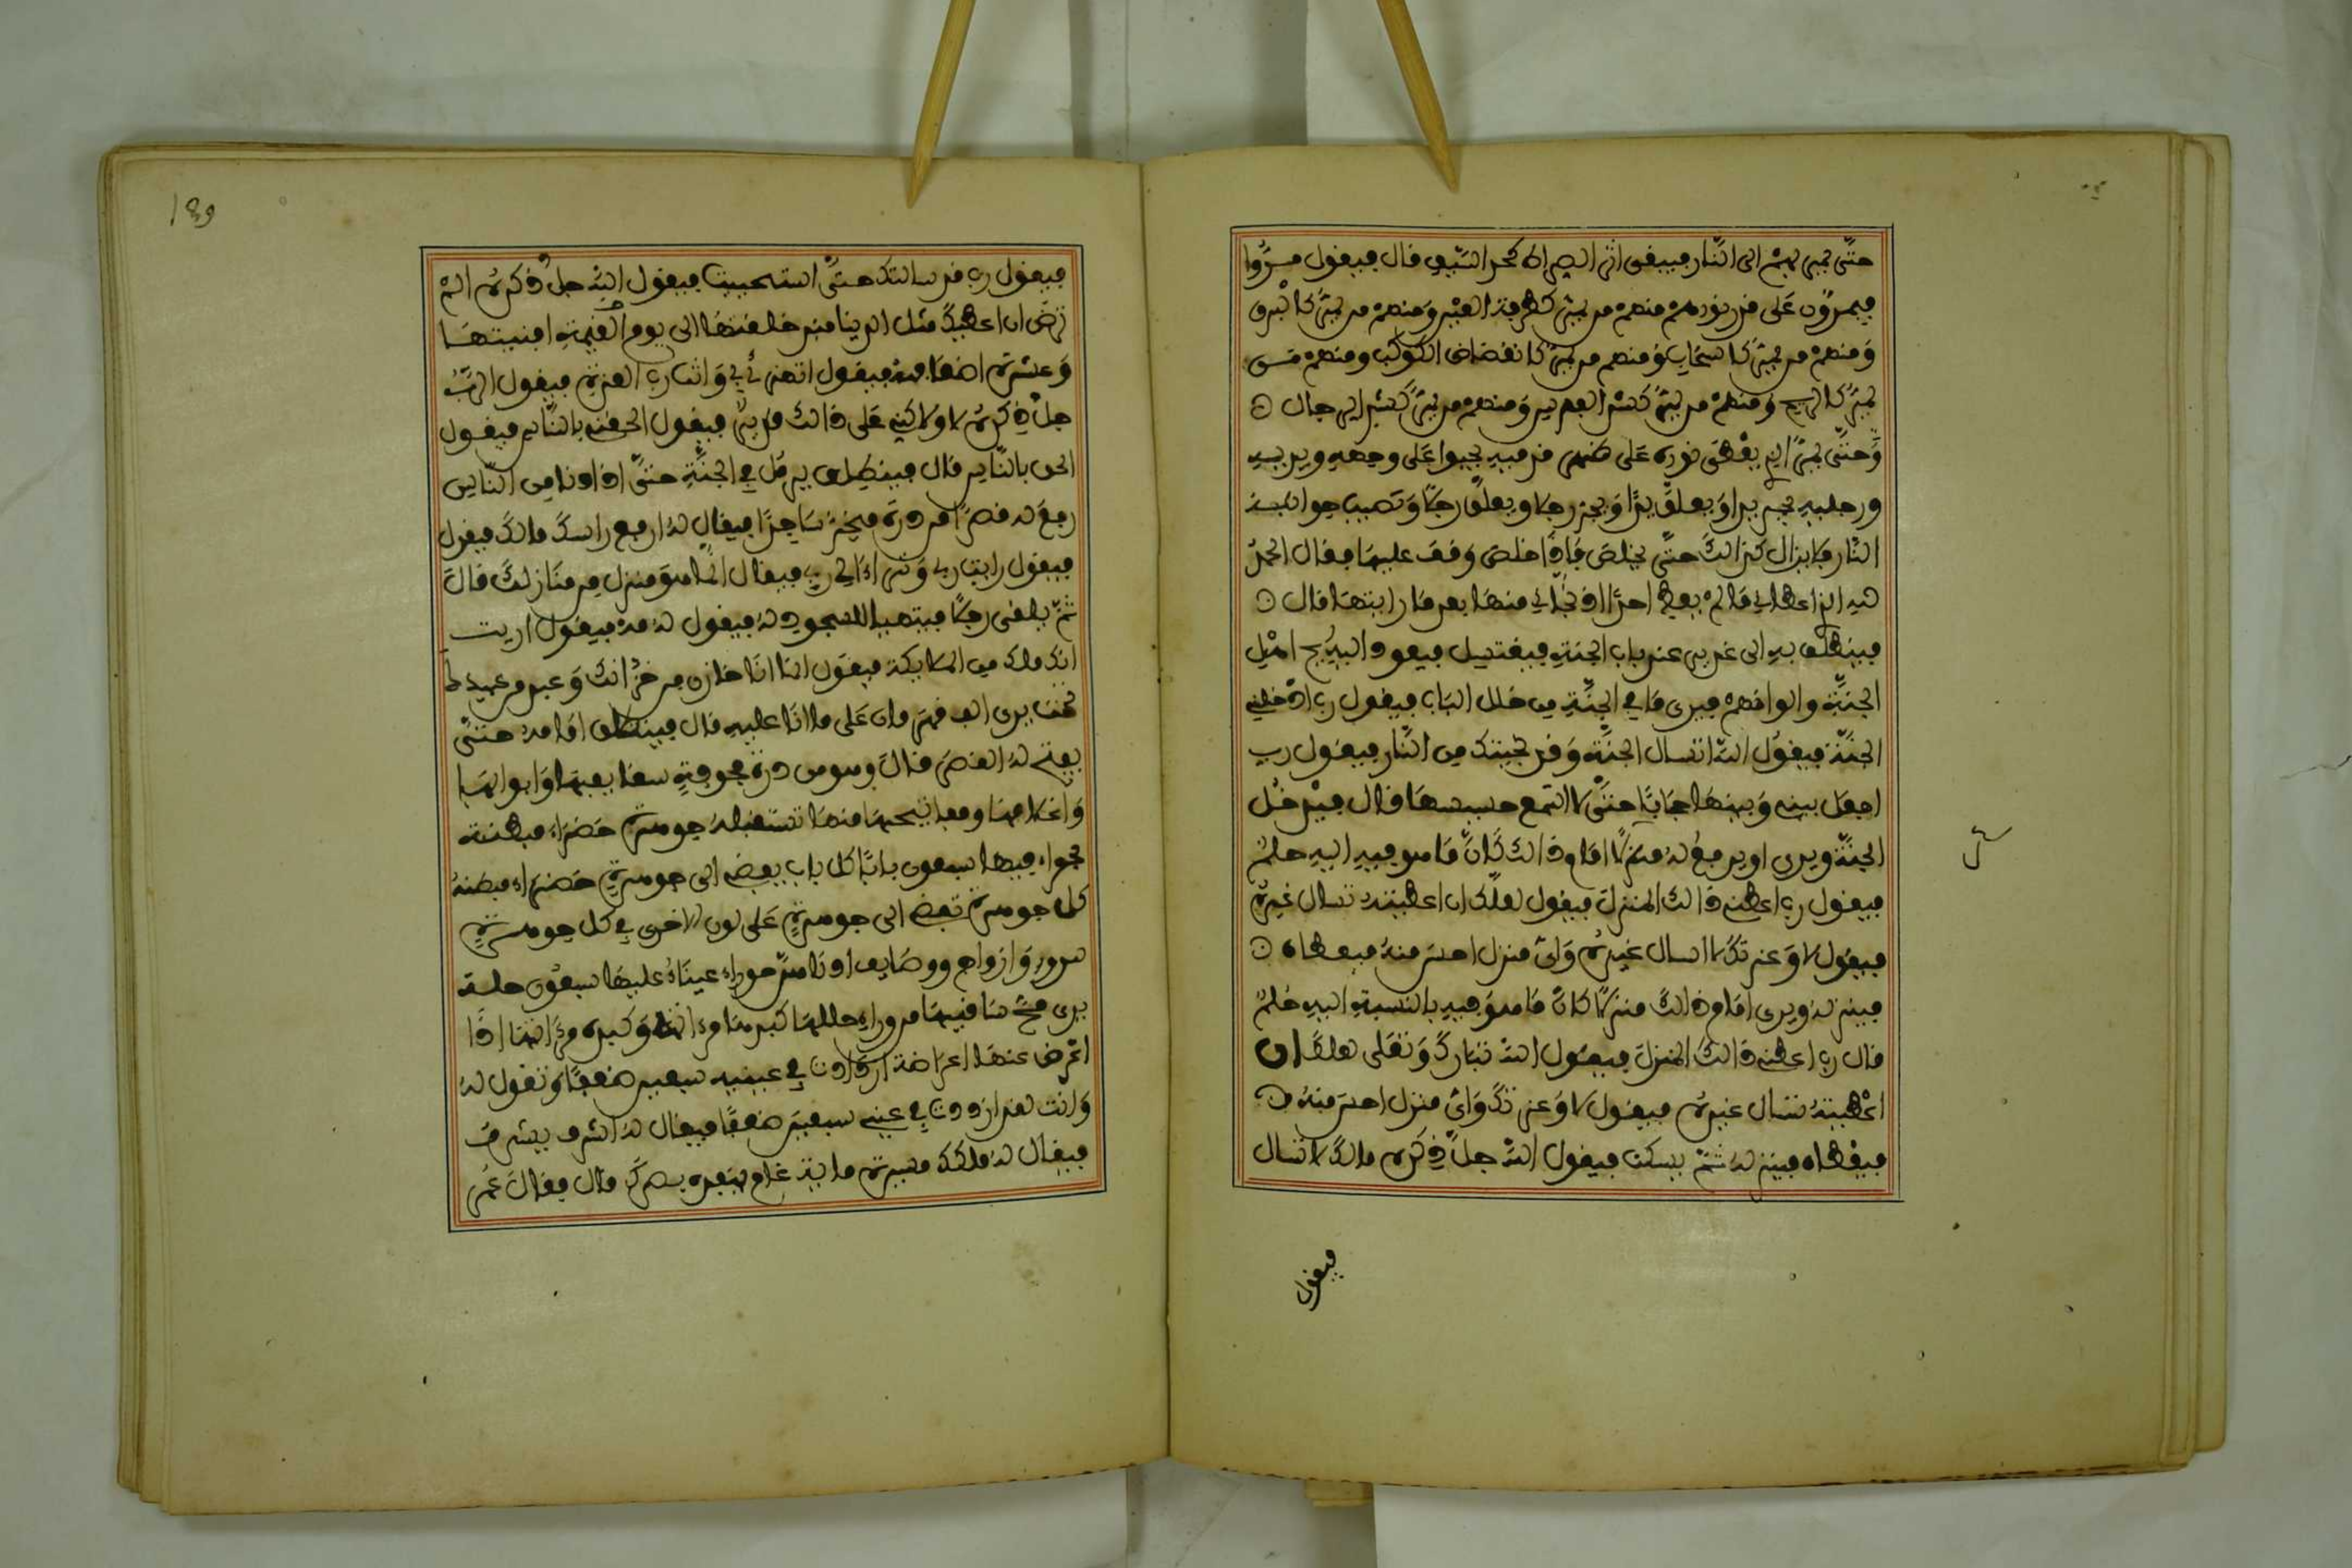 حتى يمر بهم الى النار فيبقى اثره الصراط كحد السيف قال فيقول مروا
فيمرون على قدر نورهم منهم من يمر كطرفة العين ومنهم من يمر كالبرق
ومنهم من يمر كالسحاب ومنهم من يمر كانقضاض الكوكب ومنهم من
يمر كالريح ومنهم من يمر كشد الفرس ومنهم من يمر كشد الرجال
وحتى يمر الذي يعطى نوره على ظهر قدميه يحبوا على وجهه ويديه
ورجليه يجر يدا ويعلق يدا ويجر رجلا ويعلق رجلا وتصيب جوانبه
النار فلا يزال كذلك حتى يخلص فاذا خلص وقف عليها فقال الحمد
لله الذي اعطاني ما لم يعط احدا اذ نجاني منها بعد ما رايتها قال
فينطلق به الى غدير عند باب الجنة فيغتسل فيعود اليه ريح اهل
الجنة والوانهم فيرى ما في الجنة من خلل الباب فيقول رب ادخلني
الجنة فيقول الله اتسال الجنة وقد نجيتك من النار فيقول رب
اجعل بيني وبينها حجابا حتى لا اسمع حسيسها قال فيدخل
الجنة ويرى او يرفع له منزلا امام ذالك كان ما هو فيه اليه حلم
فيقول رب اعطني ذالك المنزل فيقول لعلك ان اعطيتك تسال غيره
فيقول لا وعزتك لا اسال غيره واي منزل احسن منه فيعطاه
فينزله ويرى امام ذالك منزلا كان ما هو فيه بالنسبة اليه حلم
قال رب اعطني ذالك المنزل فيقول الله تبارك وتعلى لعلك ان
اعطيته تسال غيره فيقول لا وعزتك واي منزل احسن منه
فيعطاه فينزله ثم يسكت فيقول الله جل ذكره مالك لا تسال
فيقول
139
فيقول رب قد سالتك حتى استحييت فيقول الله جل ذكره الم
ترض ان اعطيك مثل الدنيا منذ خلقتها الى يوم القيمة افنيتها
وعشرة اضعافه فيقول اتهزا بي وانت رب العزة فيقول الرب
جل ذكره لا ولاكني على ذالك قادر فيقول الحقني بالناس فيقول
الحق بالناس قال فينطلق يرمل في الجنة حتى اذا دنا من الناس
رفع له قصرا من درة فيخر ساجدا فيقال له ارفع راسك مالك فيقول
فيقول رايت ربي وتراءا لي ربي فيقال انما هو منزل من منازلك قال
ثم يلقى رجلا فيتهيا للسجود له فيقول له مه فيقول رايت
انك ملك من الملايكة فيقول انما انا خازن من خزانك وعبد من عبيدك
تحت يدي الف قهرمان على ما انا عليه قال فينطلق امامه حتى
يفتح له القصر قال وهو من درة مجوفة سقايفها وابوابها
واغلاقها ومفاتيحها منها تستقبله جوهرة خضراء مبطنة
بحمراء فيها سبعون بابا كل باب يفضي الى جوهرة خضراء مبطنة
كل جوهرة تفضي الى جوهرة على لون الاخرى في كل جوهرة
سرور وازواج ووصايف ادناهن حوراء عيناء عليها سبعون حلة
يرى مخ ساقيها من وراء حللها كبدها مرءاته وكبده مرءاتها اذا
اعرض عنها اعراضة ازدادت في عينيه سبعين ضعفا وتقول له
وانت لقد ازددت في عيني سبعين ضعفا فيقال له اشرف فيشرف
فيقال له ملكك مسيرة ماية عام ينفذه بصرك قال فقال عمر